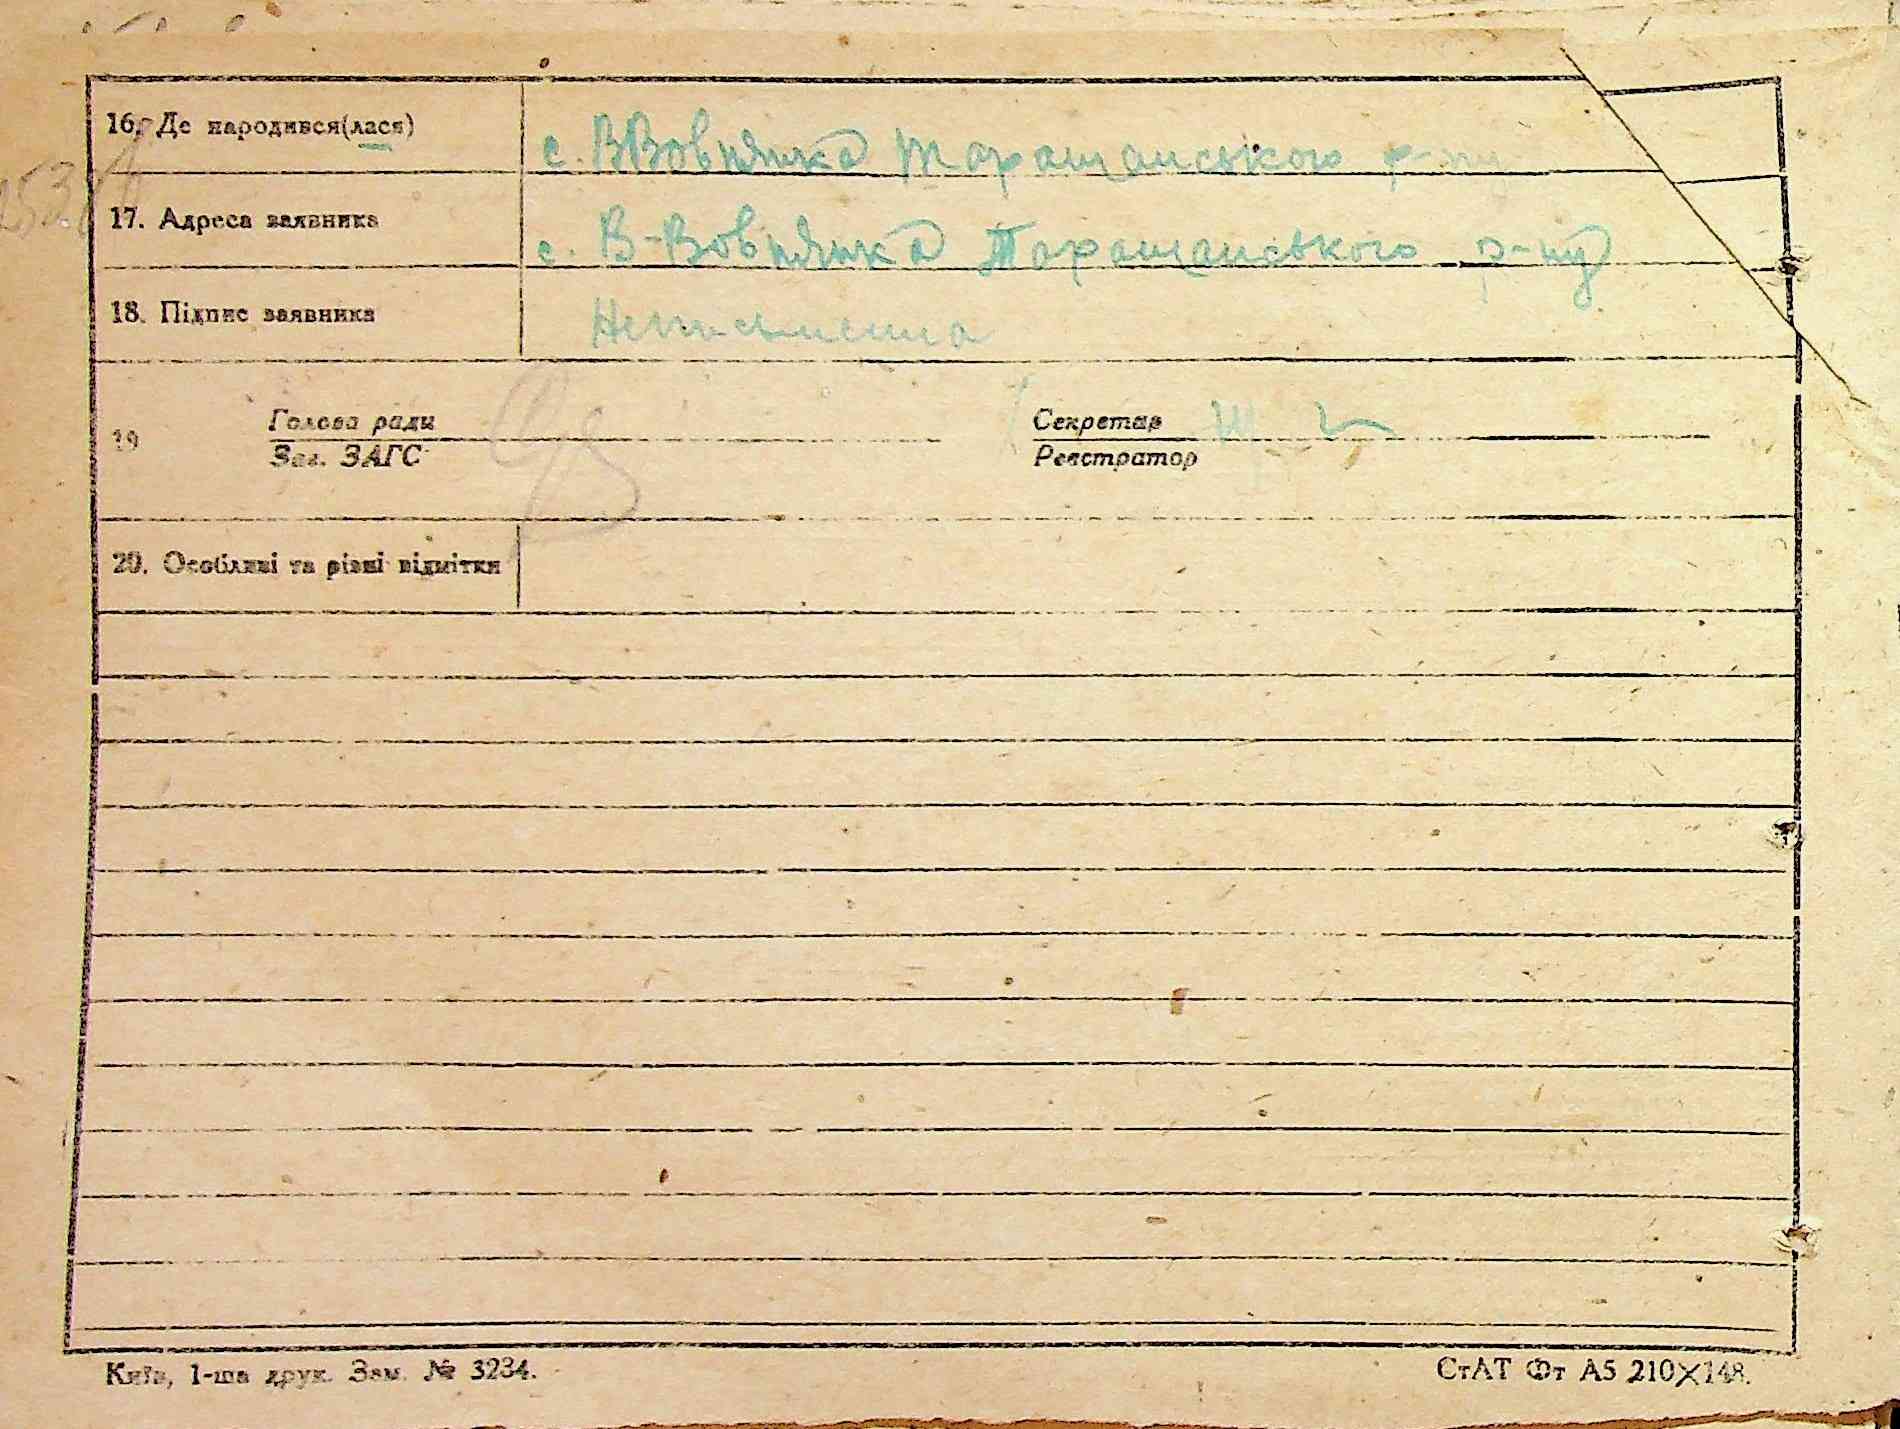 16. Де народився(лася) с. ВВовнянка Таращанського р-ну
17. Адреса заявника с. В-Вовнянка Таращанського р-ну
18. Підпис заявника Неписьменна
19 Голова ради Секретар
Зав. ЗАГС Реєстратор
20. Особливі та різні відмітки
Київ, 1-ша друк. Зам. № 3234. СтАТ Фт А5 210×148.